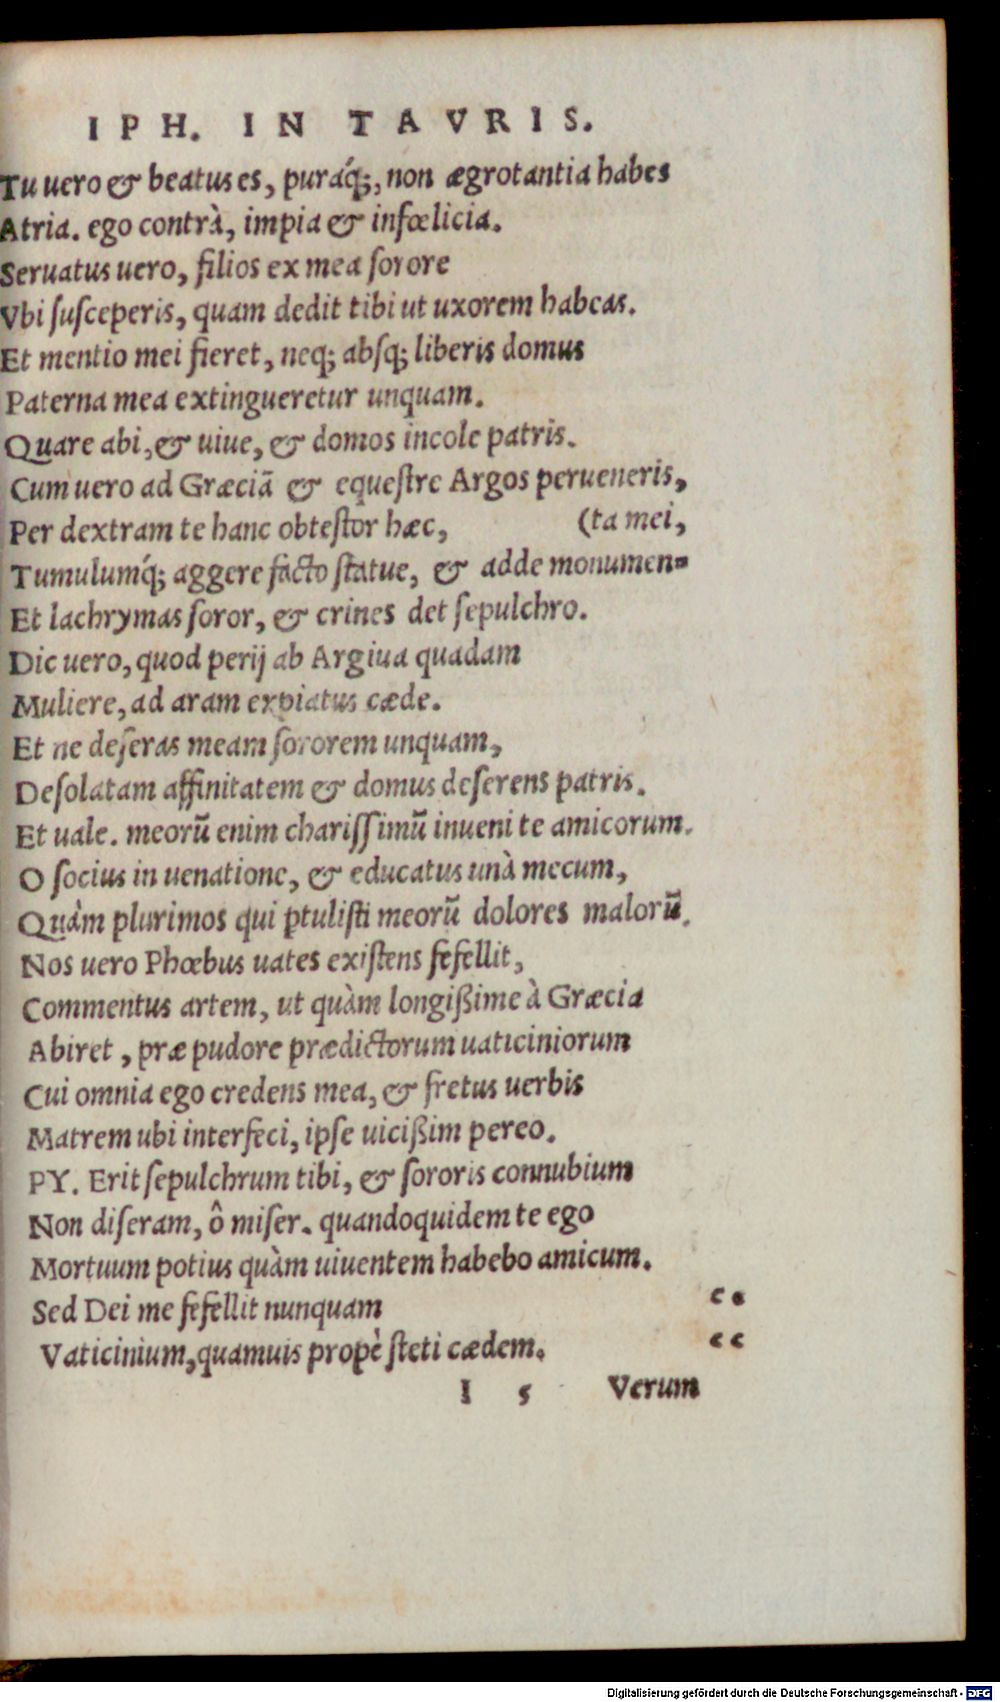 IPH. IN TAVRIS.
Tu uero & beatus es, puraq́;, non ægrotantia habes
Atria. ego contrà, impia & infœlicia.
Seruatus uero, filios ex mea ſorore
Vbi ſuſceperis, quam dedit tibi ut uxorem habeas.
Et mentio mei fieret, neq; abſq; liberis domus
Paterna mea extingueretur unquam.
Quare abi, & uiue, & domos incole patris.
Cum uero ad Græciā & equeſtre Argos perueneris,
Per dextram te hanc obteſtor hæc, (ta mei,
Tumulumq́; aggere facto ſtatue, & adde monumen-
Et lachrymas ſoror, & crines det ſepulchro.
Dic uero, quod perij ab Argiua quadam
Muliere, ad aram expiatus cæde.
Et ne deſeras meam ſororem unquam,
Deſolatam affinitatem & domus deſerens patris.
Et uale. meorū enim chariſſimū inueni te amicorum.
O ſocius in uenatione, & educatus unà mecum,
Quàm plurimos qui ꝑtuliſti meorū dolores malorū.
Nos uero Phœbus uates exiſtens fefellit,
Commentus artem, ut quàm longißime à Græcia
Abiret, præ pudore prædictorum uaticiniorum
Cui omnia ego credens mea, & fretus uerbis
Matrem ubi interfeci, ipſe uicißim pereo.
PY. Erit ſepulchrum tibi, & ſororis connubium
Non diſeram, ô miſer. quandoquidem te ego
Mortuum potius quàm uiuentem habebo amicum.
Sed Dei me fefellit nunquam “
Vaticinium, quamuis propè ſteti cædem. “
I 5 Verum
Digitalisierung gefördert durch die Deutsche Forschungsgemeinschaft - DFG